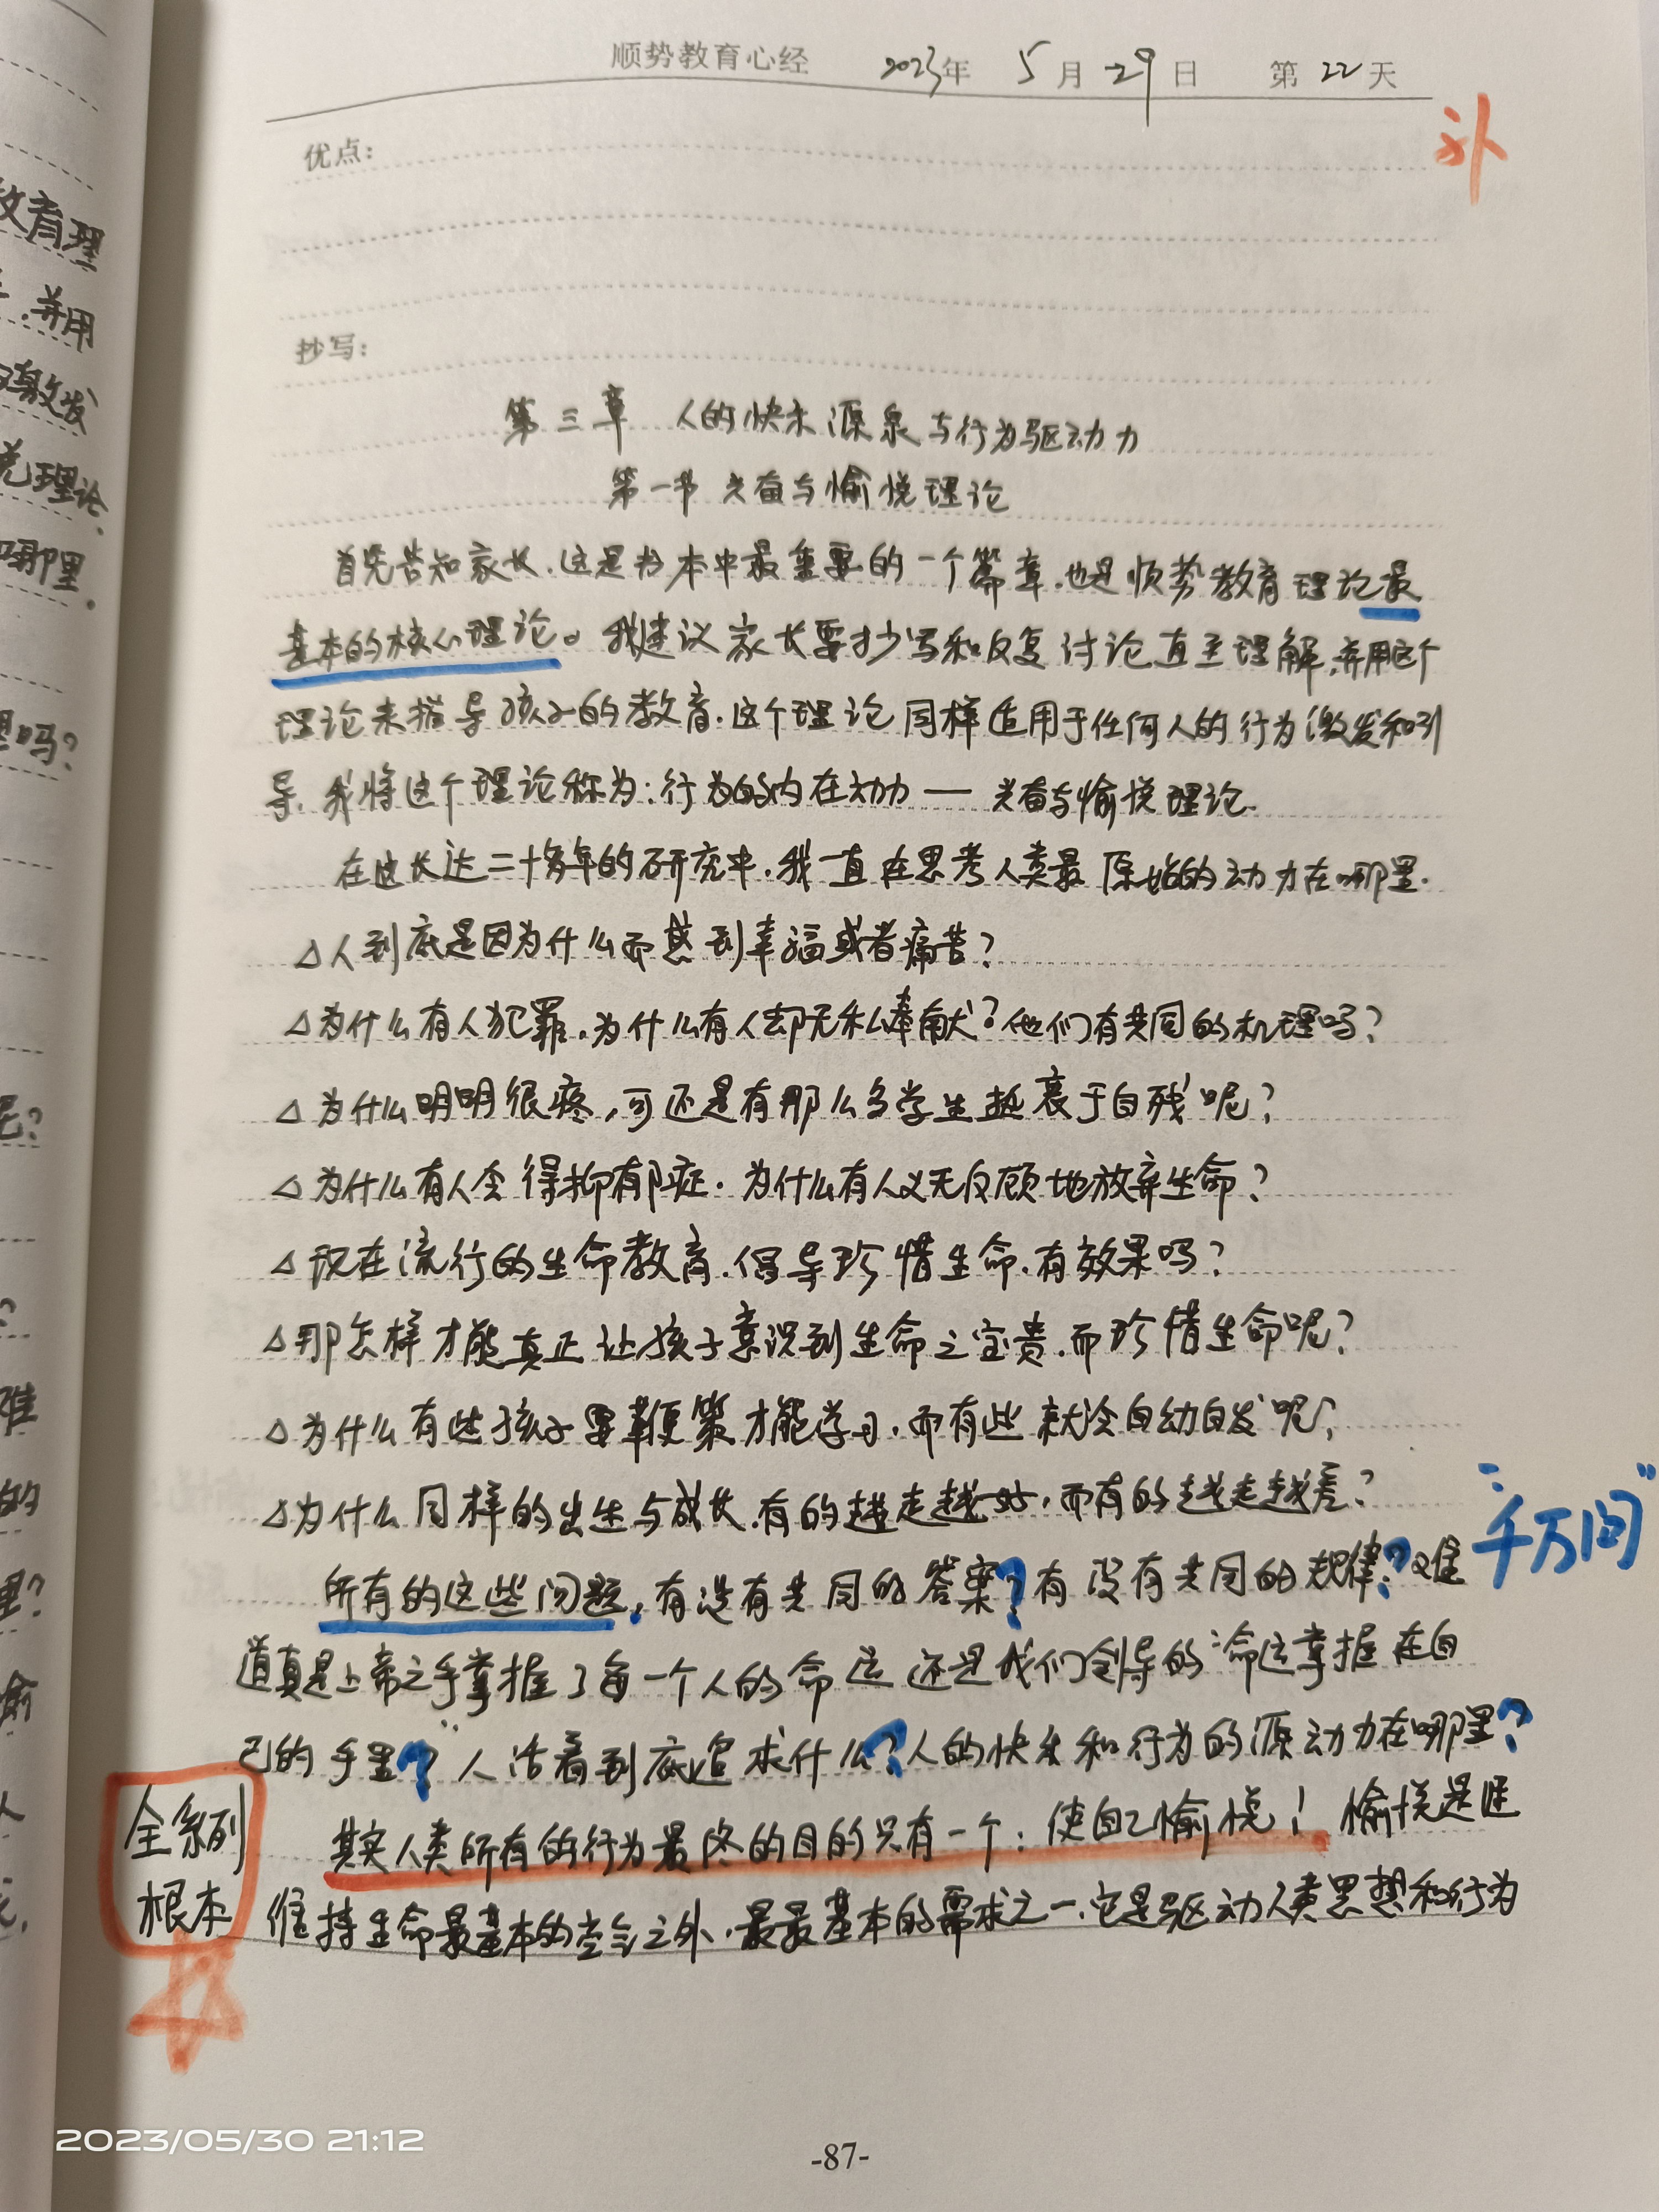 顺势教育心经 2023年 5月29日 第22天
补
优点:
抄写:
第三章 人的快乐源泉与行为驱动力
第一节 兴奋与愉悦理论
首先告知家长,这是书本中最重要的一个篇章,也是顺势教育理论最
基本的核心理论。我建议家长要抄写和反复讨论直至理解,并用这个
理论来指导孩子的教育.这个理论同样适用于任何人的行为激发和引
导.我将这个理论称为:行为的内在动力——兴奋与愉悦理论.
在这长达二十多年的研究中.我一直在思考人类最原始的动力在哪里.
△人到底是因为什么而感到幸福或者痛苦?
△为什么有人犯罪,为什么有人却无私奉献?他们有共同的机理吗?
△为什么明明很疼,可还是有那么多学生热衷于自残呢?
△为什么有人会得抑郁症.为什么有人义无反顾地放弃生命?
△现在流行的生命教育.倡导珍惜生命.有效果吗?
△那怎样才能真正让孩子意识到生命之宝贵.而珍惜生命呢?
△为什么有些孩子要鞭策才能学习.而有些就会自动自发呢?
△为什么同样的出生与成长.有的越走越好,而有的越走越差?
“千万问”
所有的这些问题,有没有共同的答案?有没有共同的规律?难
道真是上帝之手掌握了每一个人的命运 还是我们倡导的“命运掌握在自
己的手里”?人活着到底追求什么?人的快乐和行为的源动力在哪里?
全系列
根本
其实人类所有的行为最终的目的只有一个:使自己愉悦!愉悦是连
维持生命最基本的空气之外.最最基本的需求之一.它是驱动人类思想和行为
2023/05/30 21:12
-87-
教育理
.并用
激发
理论.
哪里.
吗?